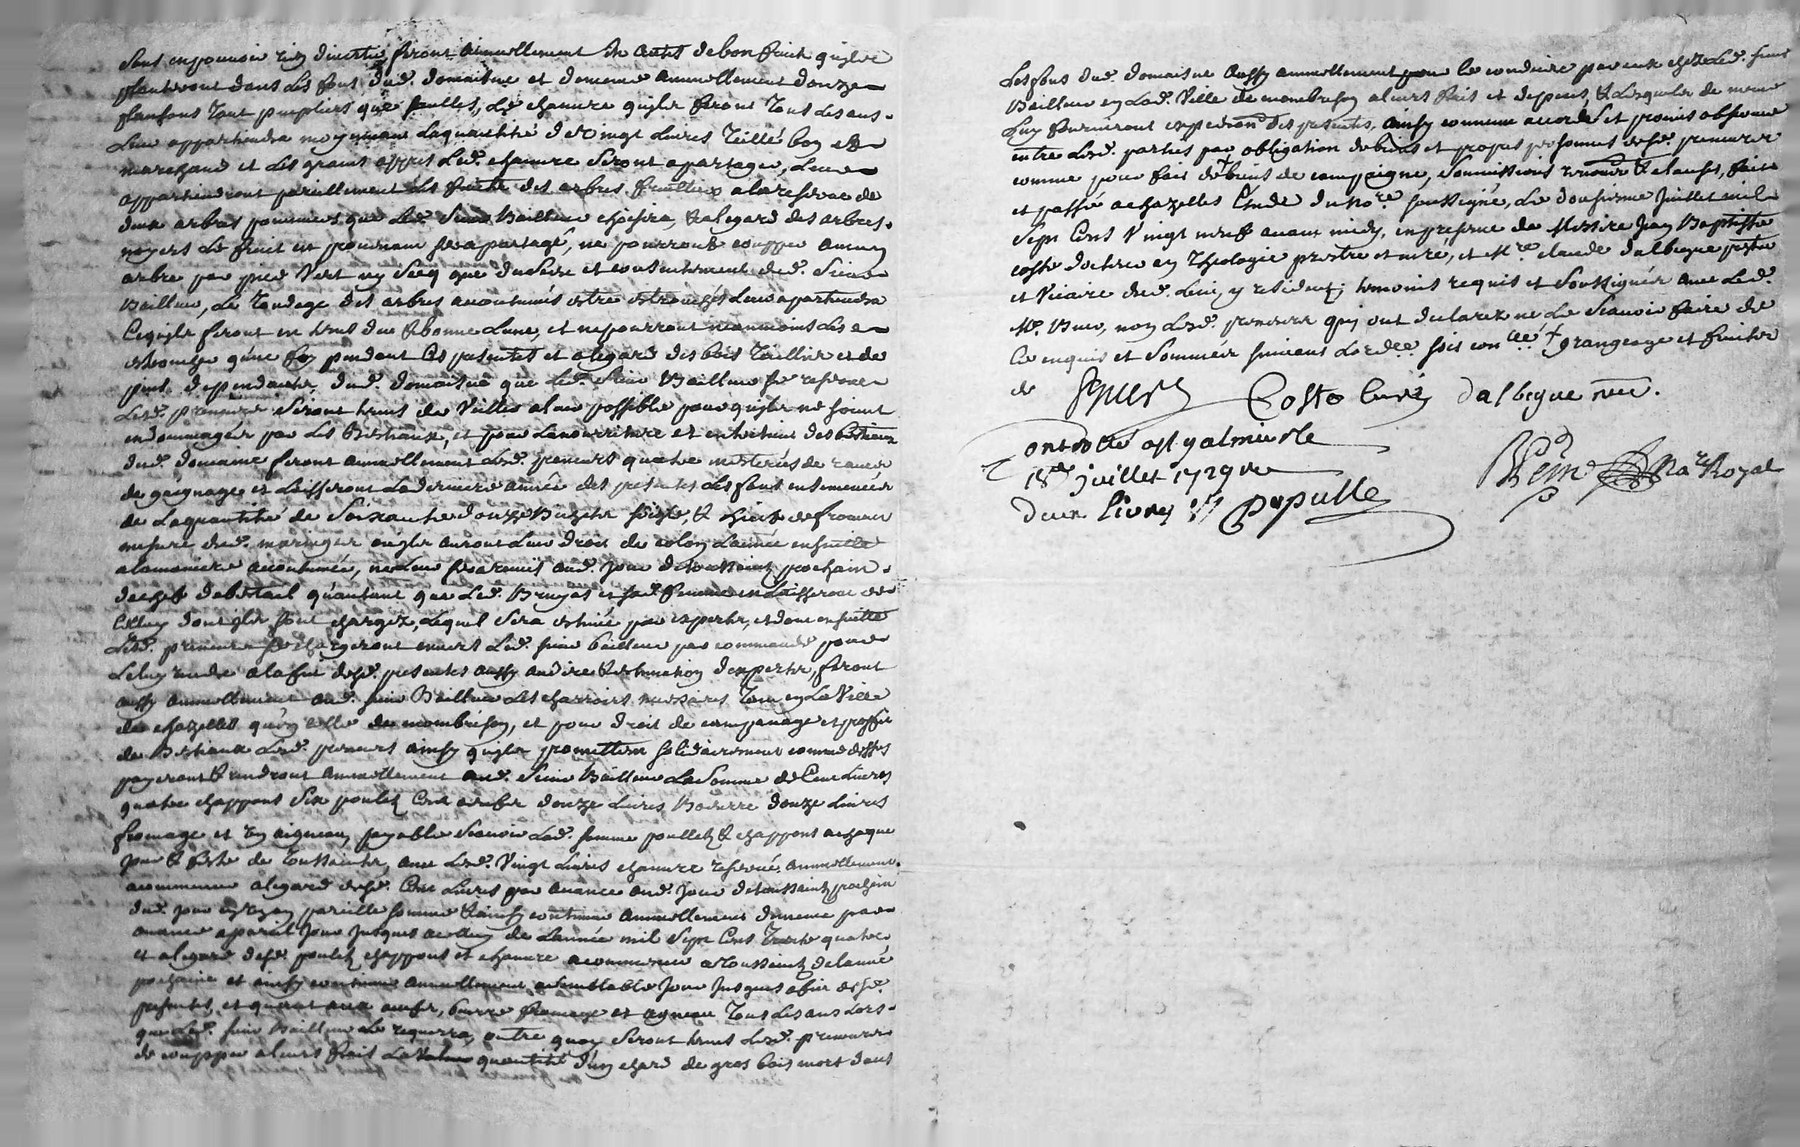 sans en pouvoir rien divertir, feront annuellement six antés de bon fruit qu'ilz
planteront dans les fons dud. domaisne et de mesme annuellement douze
plansons tant peupliers que saulles, le chanvre qu'ilz feront tous les ans
leur appartiendra moyennant la quantité de vingt livres teillé bon et
marchand et les grains appres led. chanvre seront a partager, leur
appartiendront pareillement les fruits des arbres fruitiers a la reserve de
deux arbres pommiers que led. sieur Bailleur choisira, et a l'egard des arbres
noyers le fruit en provenant sera partagé, ne pourront coupper aucun
arbre par pied vert ny secq que du sceu et consentement dud. sieur
Bailleur, le tondage des arbres accoutumés estre estronchés leur apartiendra
lesquelz feront en tems deu et bonne lune, et ne pourront neanmoins les
estroncher qu'une fois pendant les presentes et a l'egard des bois taillier et de
dependants dud. domaisne que led. sieur Bailleur se reserve
lesd. preneurs seront tenus de veiller a leur possible pour qu'ilz ne soient
endommagés par les Bestiaux, et pour la nourriture et entretient des bestiaux
dud. domaine feront annuellement lesd. preneurs quatre
de gaignage et laisseront la derniere année des presentes les fons ensemencés
de la quantité de soixante douze Bichets seigle, et huict de froment
mesure dud. ou ilz auront leur droit de colon l'année ensuitte
a la maniere accoutumée, ne leur sera remis aud. jour de toussaint prochain
de chef de bestail qu'autant que led. Bruyas et sad. femme en laisseront
celluy dont ilz sont chargez, lequel sera estimé par expertz, et dont ensuitte
lesd. preneurs se chargeront envers led. sieur bailleur par commande pour
le luy rendre a la fin desd. presentes aussy au dire et estimation d'expertz, feront
aussy annuellement aud. sieur Bailleur les charrois necessaires tant en la Ville
de chazelles qu'en celle de mombrison, et pour droit de campanage et proffit
de Bestiaux lesd. preneurs ainsy qu'ilz promettent solidairement comme dessus
payeront et rendront annuellement aud. sieur Bailleur la somme de Cent livres
quatre chappons six poulets Cent œufs douze livres Beurre douze livres
fromage et un aigneau, payable scavoir lad. somme poullets et chappons a chaque
jour et feste de toussaints, avec lesd. vingt livres chanvre reservé annuellement
a commencer a l'egard desd. Cent livres par avance aud. jour de toussaint prochain
dud. jour en un an pareille somme et ainsy continuer annuellement de mesme par
avance a pareil jour jusques a celluy de l'année mil sept cens trente quatre
et a l'egard desd. poulets chappons et chanvre a commencer a toussaint de l'anné
prochaine et ainsy continuer annuellement a semblable jour jusques a fin desd.
presentes, et quant aux œufs, beurre fromage et agneau tous les ans lors
que led. sieur Bailleur le requerra, outre quoy seront tenus lesd. preneurs
de coupper a leurs frais la quantité d'un chard de gros bois mort dans
les fons dud. domaisne aussy annuellement pour le conduire par eux chez led. sieur
Bailleur en lad. Ville de mombrison a leurs frais et depens, et lesquelz de mesme
luy fourniront expedition des presentes, ainsy comme accordé et promis observer
entre lesd. parties par obligation de biens et propres personnes desd. preneurs
comme pour fait de biens de campaigne, soumissions renonces et clauses, fait
et passé a chazelles Etude du Nore soussigné, le douzieme juillet mil
sept cens vingt neuf avant midy, en presence de Messire Jean Baptiste
coste docteur en theologie prestre et curé, et Mre claude dalbegue prestre
et vicaire dud. lieu y residents temoins requis et soussignés avec led.
Mr. non lesd. preneurs qui ont declarez ne le scavoir faire de
ce enquis et sommés suivant l'ordce soit concé + grangeage et fruits
de
Coste curé dalbegue vicc.
controllé a St galmier le
18e juillet 1729 Re
deux livres
Papulle
Nare Royal